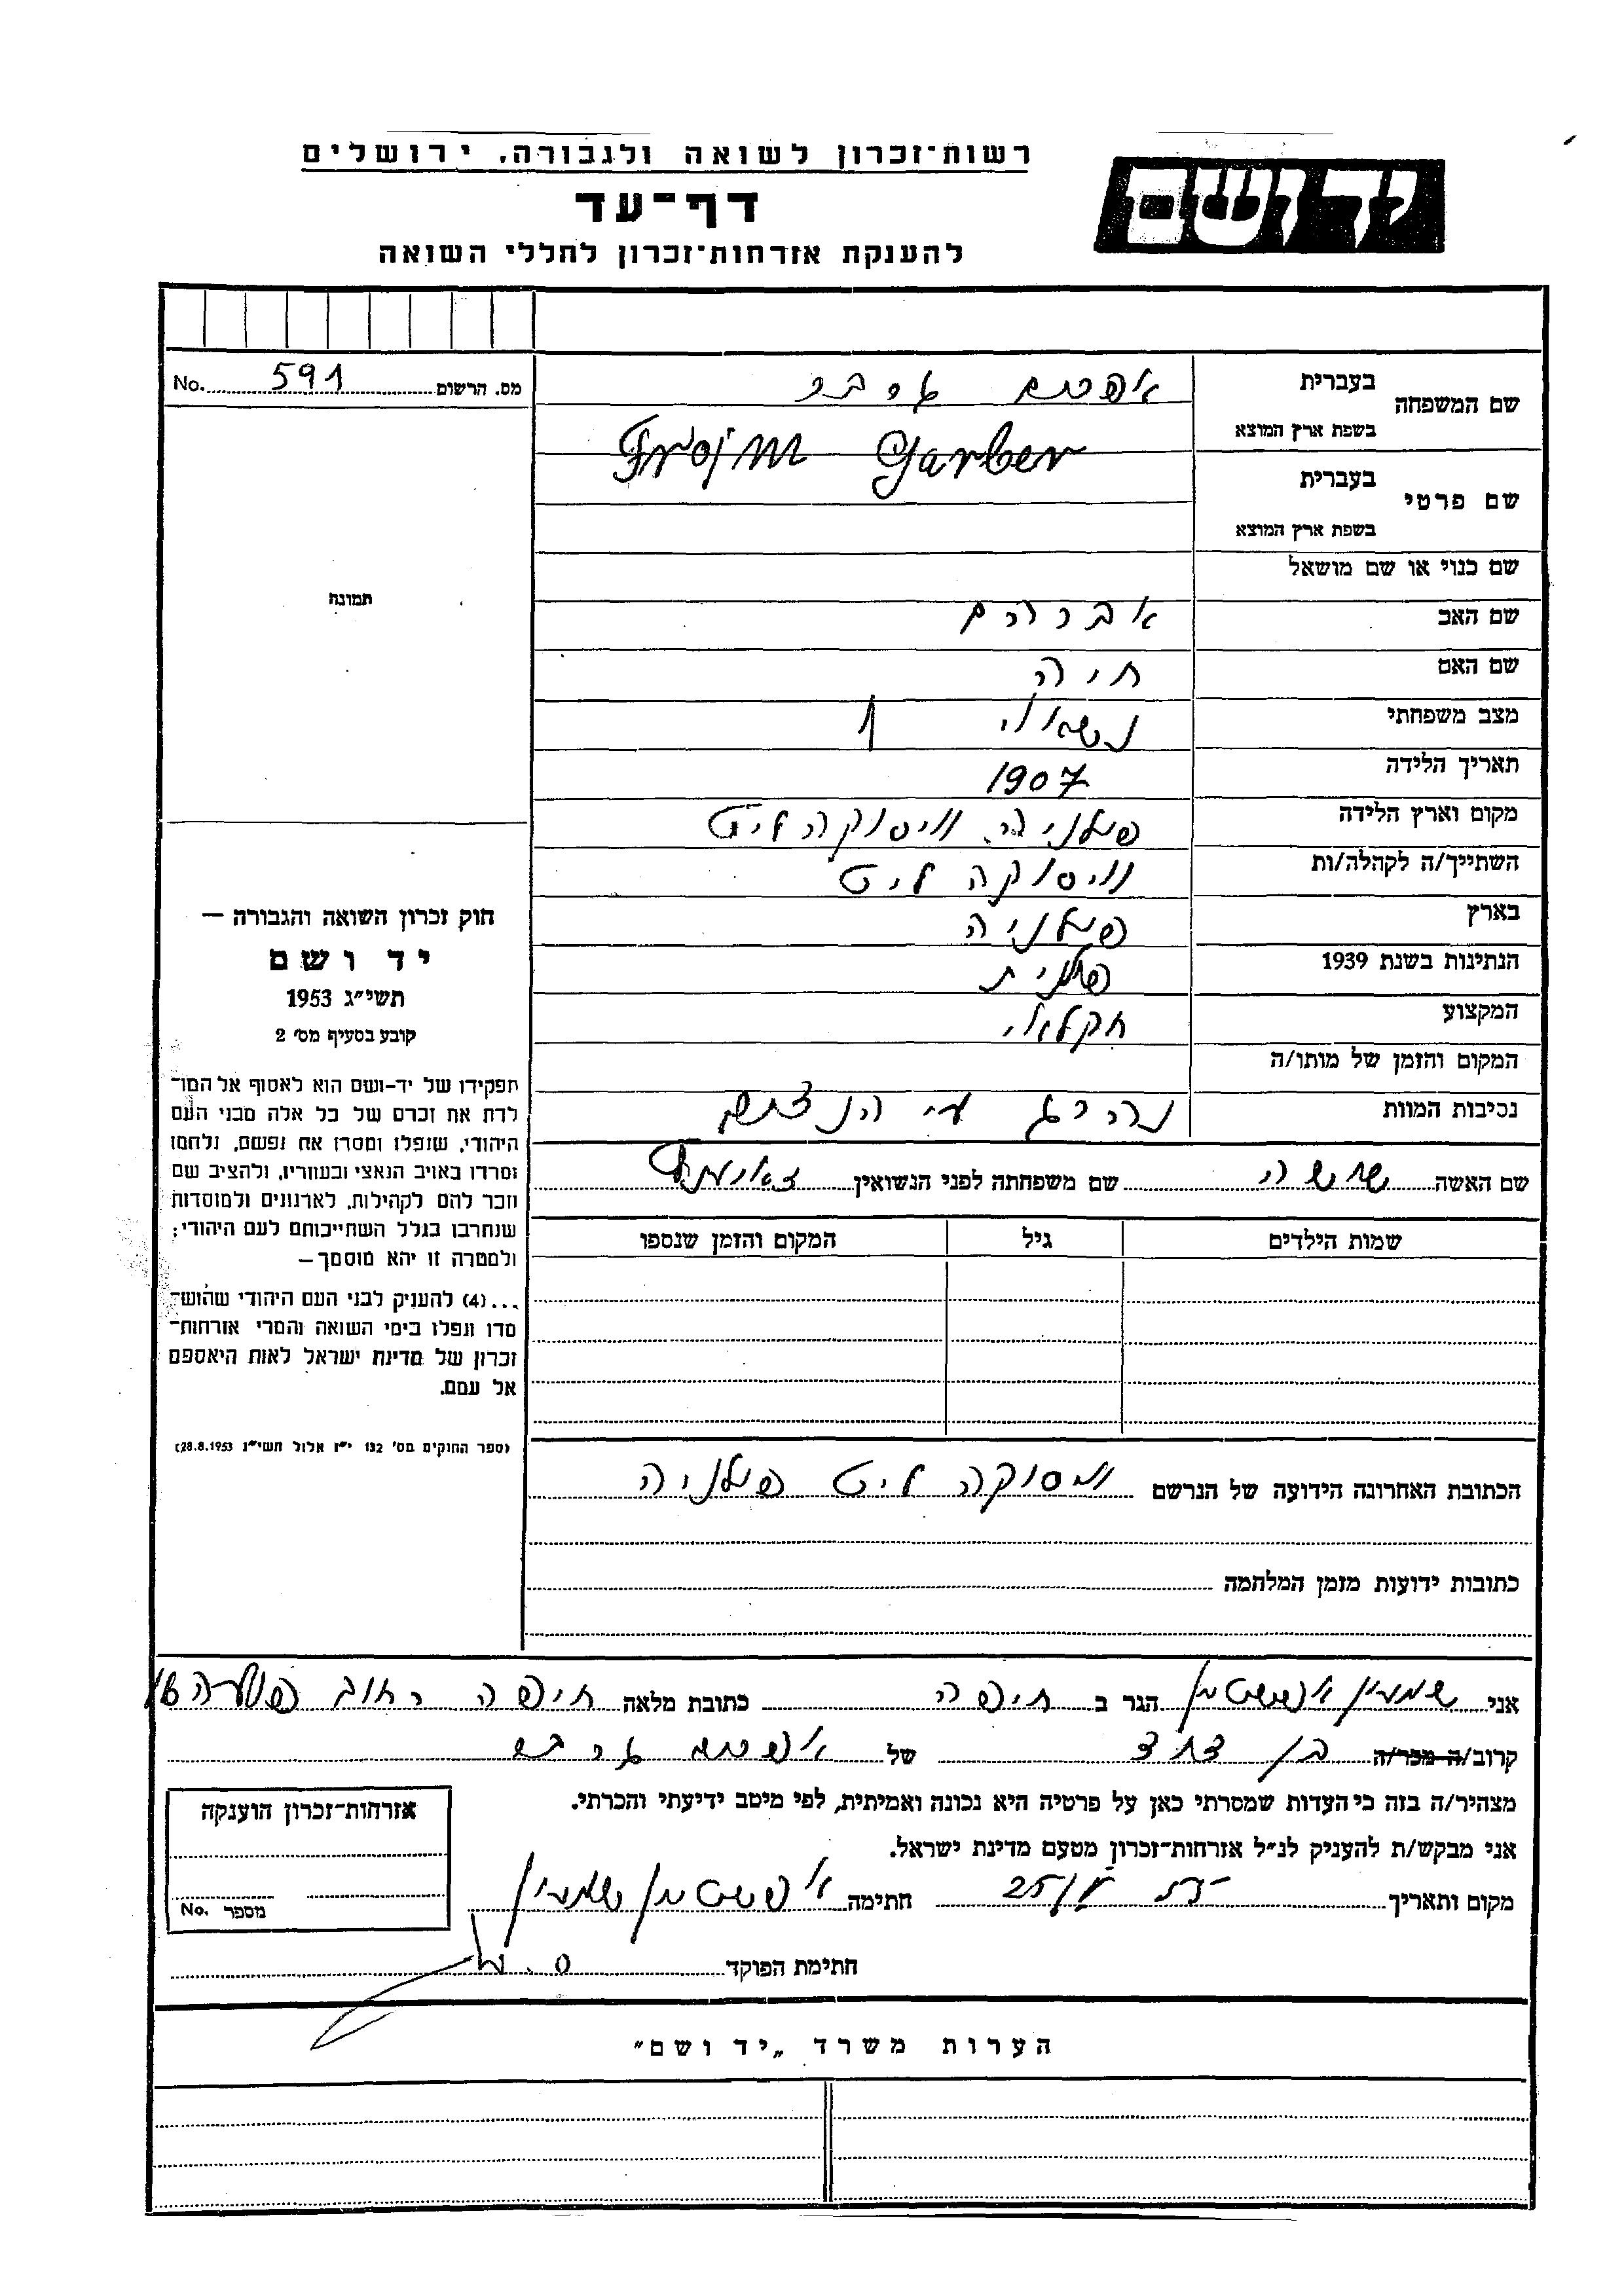 רשות־זכרון לשואה ולגבורה, ירושלים
יד ושם
דף־עד
להענקת אזרחות־זכרון לחללי השואה
מס. הרשום 591 No.
שם המשפחה
בעברית אפרים גרבר
בשפת ארץ המוצא Frojm Garber
שם פרטי
בעברית
בשפת ארץ המוצא
שם כנוי או שם מושאל
שם האב אברהם
שם האם חיה
מצב משפחתי נשאוי
תאריך הלידה 1907
מקום וארץ הלידה פולניה וויסוקה ליט
השתייך/ה לקהלה/ות וויסוקה ליט
בארץ פולניה
הנתינות בשנת 1939 פולנית
המקצוע חקלאי
המקום והזמן של מותו/ה
נסיבות המוות נהרג ע״י הנצים
תמונה
חוק זכרון השואה והגבורה —
יד ושם
תשי״ג 1953
קובע בסעיף מס׳ 2
תפקידו של יד-ושם הוא לאסוף אל המו־
לדת את זכרם של כל אלה מבני העם
היהודי, שנפלו ומסרו את נפשם, נלחמו
ומרדו באויב הנאצי ובעוזריו, ולהציב שם
וזכר להם לקהילות, לארגונים ולמוסדות
שנחרבו בגלל השתייכותם לעם היהודי;
ולמטרה זו יהא מוסמך —
...(4) להעניק לבני העם היהודי שהוש־
מדו ונפלו בימי השואה והמרי אזרחות־
זכרון של מדינת ישראל לאות היאספם
אל עמם.
(ספר החוקים מס׳ 132 י״ז אלול תשי״ג 28.8.1953)
שם האשה שושה שם משפחתה לפני הנשואין
שמות הילדים גיל המקום והזמן שנספו
הכתובת האחרונה הידועה של הנרשם וויסוקה ליט פולניה
כתובות ידועות מזמן המלחמה
אני שמעון אפשטיין הגר ב חיפה כתובת מלאה חיפה רחוב
קרוב/ה מכר/ה בן דוד של אפרים גרבר
מצהיר/ה בזה כי העדות שמסרתי כאן על פרטיה היא נכונה ואמיתית, לפי מיטב ידיעתי והכרתי.
אני מבקש/ת להעניק לנ״ל אזרחות־זכרון מטעם מדינת ישראל.
מקום ותאריך חתימה אפשטיין שמעון
חתימת הפוקד
אזרחות־זכרון הוענקה
מספר No.
הערות משרד „יד ושם״